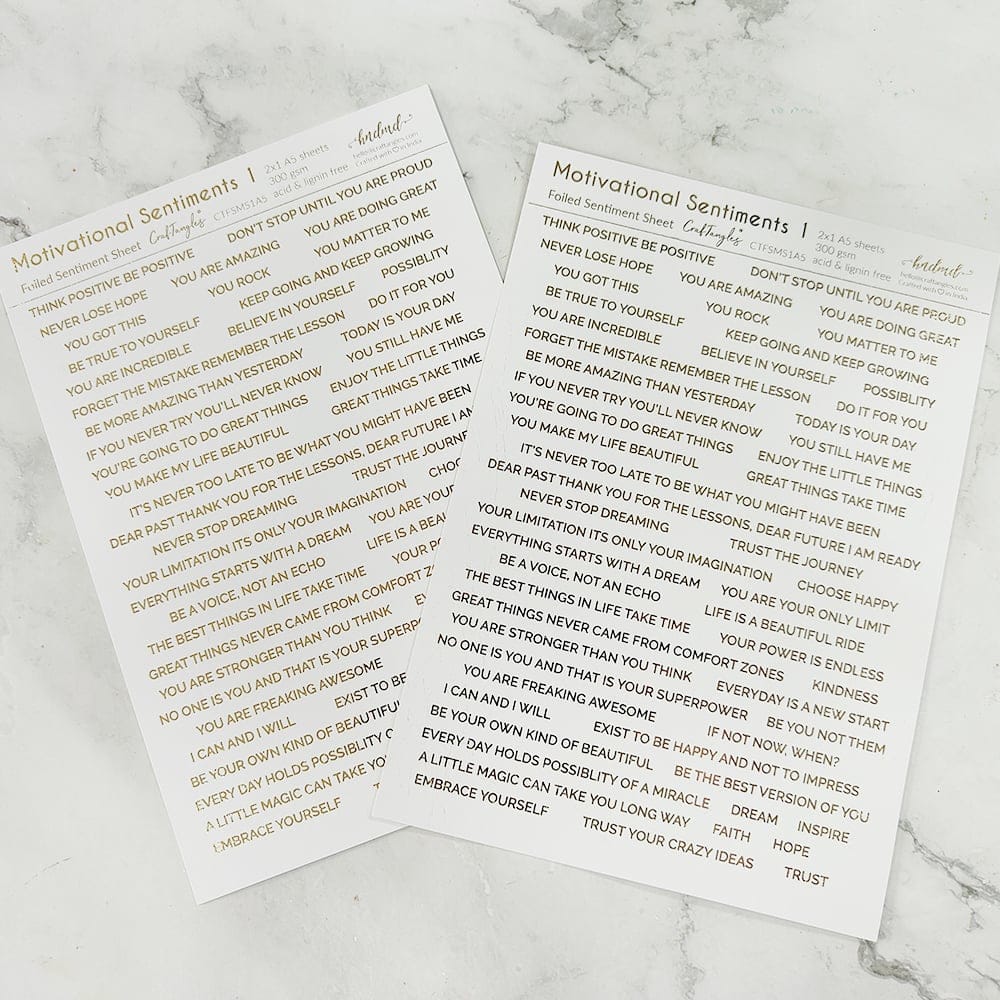 Motivational Sentiments | 2x1 A5 sheets
300 gsm
Foiled Sentiment Sheet CrafTangles CTFSMS1A5 acid & lignin free
hndmd
hello@craftangles.com
Crafted with ♡ in India
THINK POSITIVE BE POSITIVE DON'T STOP UNTIL YOU ARE PROUD
NEVER LOSE HOPE YOU ARE AMAZING YOU ARE DOING GREAT
YOU GOT THIS YOU ROCK YOU MATTER TO ME
BE TRUE TO YOURSELF KEEP GOING AND KEEP GROWING
YOU ARE INCREDIBLE BELIEVE IN YOURSELF POSSIBLITY
FORGET THE MISTAKE REMEMBER THE LESSON DO IT FOR YOU
BE MORE AMAZING THAN YESTERDAY TODAY IS YOUR DAY
IF YOU NEVER TRY YOU'LL NEVER KNOW YOU STILL HAVE ME
YOU'RE GOING TO DO GREAT THINGS ENJOY THE LITTLE THINGS
YOU MAKE MY LIFE BEAUTIFUL GREAT THINGS TAKE TIME
IT'S NEVER TOO LATE TO BE WHAT YOU MIGHT HAVE BEEN
DEAR PAST THANK YOU FOR THE LESSONS, DEAR FUTURE I AM
NEVER STOP DREAMING TRUST THE JOURNE
YOUR LIMITATION ITS ONLY YOUR IMAGINATION CHOO
EVERYTHING STARTS WITH A DREAM YOU ARE YOU
BE A VOICE, NOT AN ECHO LIFE IS A BEAU
THE BEST THINGS IN LIFE TAKE TIME YOUR PO
GREAT THINGS NEVER CAME FROM COMFORT ZO
YOU ARE STRONGER THAN YOU THINK EV
NO ONE IS YOU AND THAT IS YOUR SUPERP
YOU ARE FREAKING AWESOME
I CAN AND I WILL EXIST TO BE
BE YOUR OWN KIND OF BEAUTIFUL
EVERY DAY HOLDS POSSIBLITY O
A LITTLE MAGIC CAN TAKE YO
EMBRACE YOURSELF T
Motivational Sentiments | 2x1 A5 sheets
300 gsm
Foiled Sentiment Sheet CrafTangles CTFSMS1A5 acid & lignin free
hndmd
hello@craftangles.com
Crafted with ♡ in India
THINK POSITIVE BE POSITIVE DON'T STOP UNTIL YOU ARE PROUD
NEVER LOSE HOPE YOU ARE AMAZING YOU ARE DOING GREAT
YOU GOT THIS YOU ROCK YOU MATTER TO ME
BE TRUE TO YOURSELF KEEP GOING AND KEEP GROWING
YOU ARE INCREDIBLE BELIEVE IN YOURSELF POSSIBLITY
FORGET THE MISTAKE REMEMBER THE LESSON DO IT FOR YOU
BE MORE AMAZING THAN YESTERDAY TODAY IS YOUR DAY
IF YOU NEVER TRY YOU'LL NEVER KNOW YOU STILL HAVE ME
YOU'RE GOING TO DO GREAT THINGS ENJOY THE LITTLE THINGS
YOU MAKE MY LIFE BEAUTIFUL GREAT THINGS TAKE TIME
IT'S NEVER TOO LATE TO BE WHAT YOU MIGHT HAVE BEEN
DEAR PAST THANK YOU FOR THE LESSONS, DEAR FUTURE I AM READY
NEVER STOP DREAMING TRUST THE JOURNEY
YOUR LIMITATION ITS ONLY YOUR IMAGINATION CHOOSE HAPPY
EVERYTHING STARTS WITH A DREAM YOU ARE YOUR ONLY LIMIT
BE A VOICE, NOT AN ECHO LIFE IS A BEAUTIFUL RIDE
THE BEST THINGS IN LIFE TAKE TIME YOUR POWER IS ENDLESS
GREAT THINGS NEVER CAME FROM COMFORT ZONES KINDNESS
YOU ARE STRONGER THAN YOU THINK EVERYDAY IS A NEW START
NO ONE IS YOU AND THAT IS YOUR SUPERPOWER BE YOU NOT THEM
YOU ARE FREAKING AWESOME IF NOT NOW, WHEN?
I CAN AND I WILL EXIST TO BE HAPPY AND NOT TO IMPRESS
BE YOUR OWN KIND OF BEAUTIFUL BE THE BEST VERSION OF YOU
EVERY DAY HOLDS POSSIBLITY OF A MIRACLE DREAM INSPIRE
A LITTLE MAGIC CAN TAKE YOU LONG WAY FAITH HOPE
EMBRACE YOURSELF TRUST YOUR CRAZY IDEAS TRUST